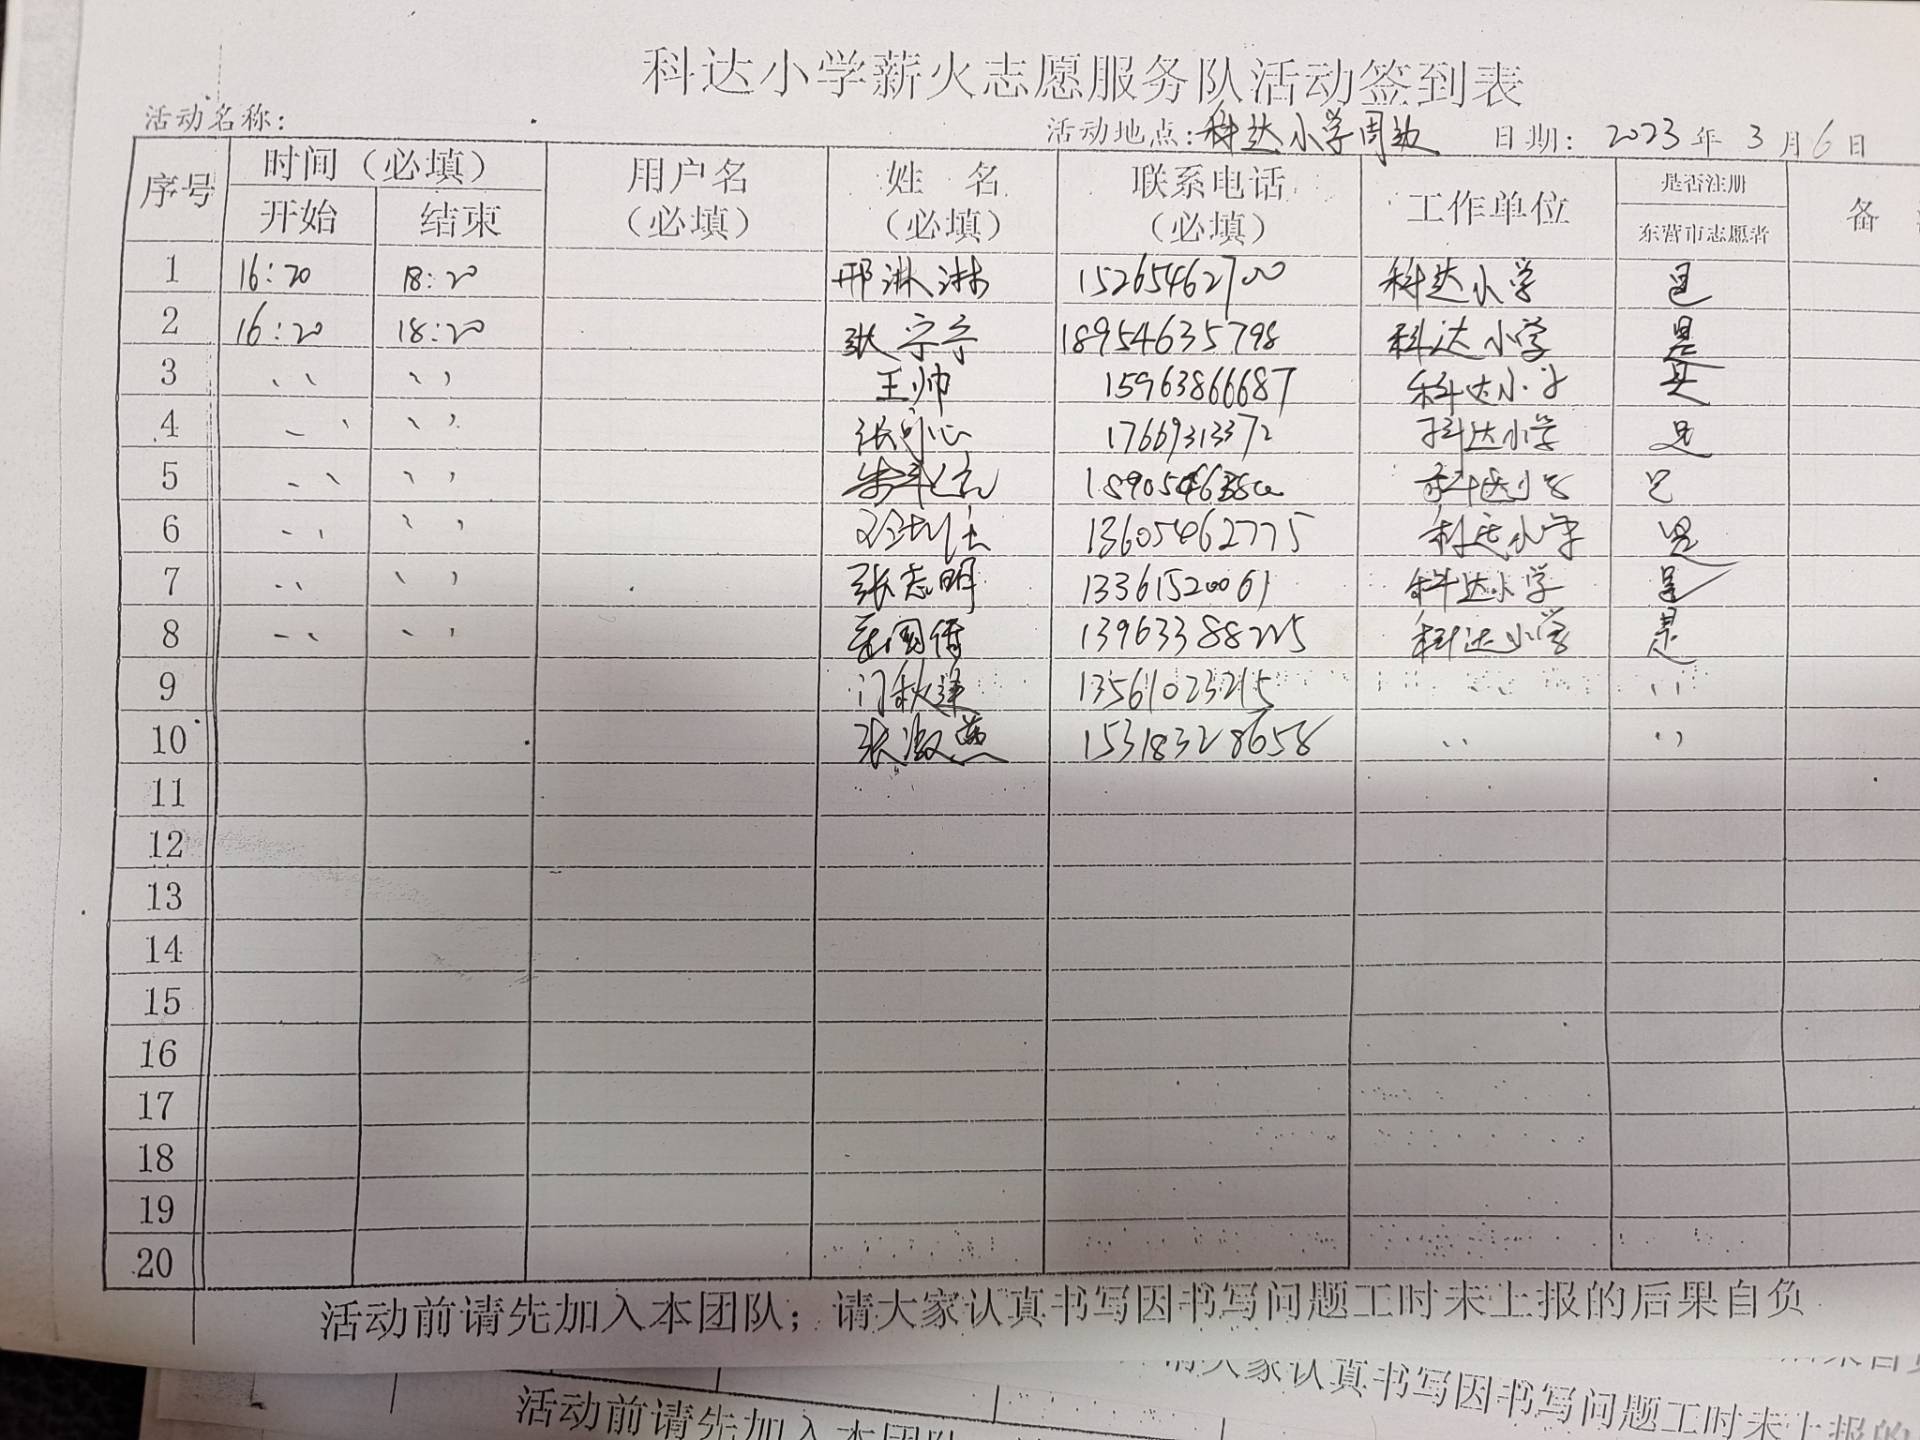 科达小学薪火志愿服务队活动签到表
活动名称: 活动地点:科达小学周边 日期: 2023 年 3 月 6 日
序号 时间（必填） 用户名（必填） 姓 名（必填） 联系电话（必填） 工作单位 是否注册 备
开始 结束 东营市志愿者
1 16:20 18:20 邢淋淋 15265462700 科达小学 是
2 16:20 18:20 张宁宁 18954635798 科达小学 是
3 王帅 15963866687 科达小学 是
4 17669313372 科达小学 是
5 科达小学 是
6 13605462775 科达小学 是
7 张志明 13361520061 科达小学 是
8 13963388225 科达小学 是
9 门秋莲 13561023215
10 张淑燕 15318328658
11
12
13
14
15
16
17
18
19
20
活动前请先加入本团队；请大家认真书写因书写问题工时未上报的后果自负
请大家认真书写因书写问题工时未上报的
活动前请先加入本团队